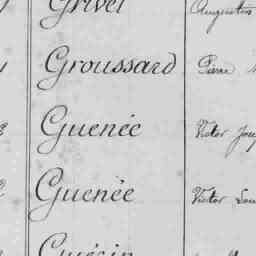 Grivel Augustin
Groussard Pierre
Guenée Victor Jose
Guenée Victor Lou
Guérin